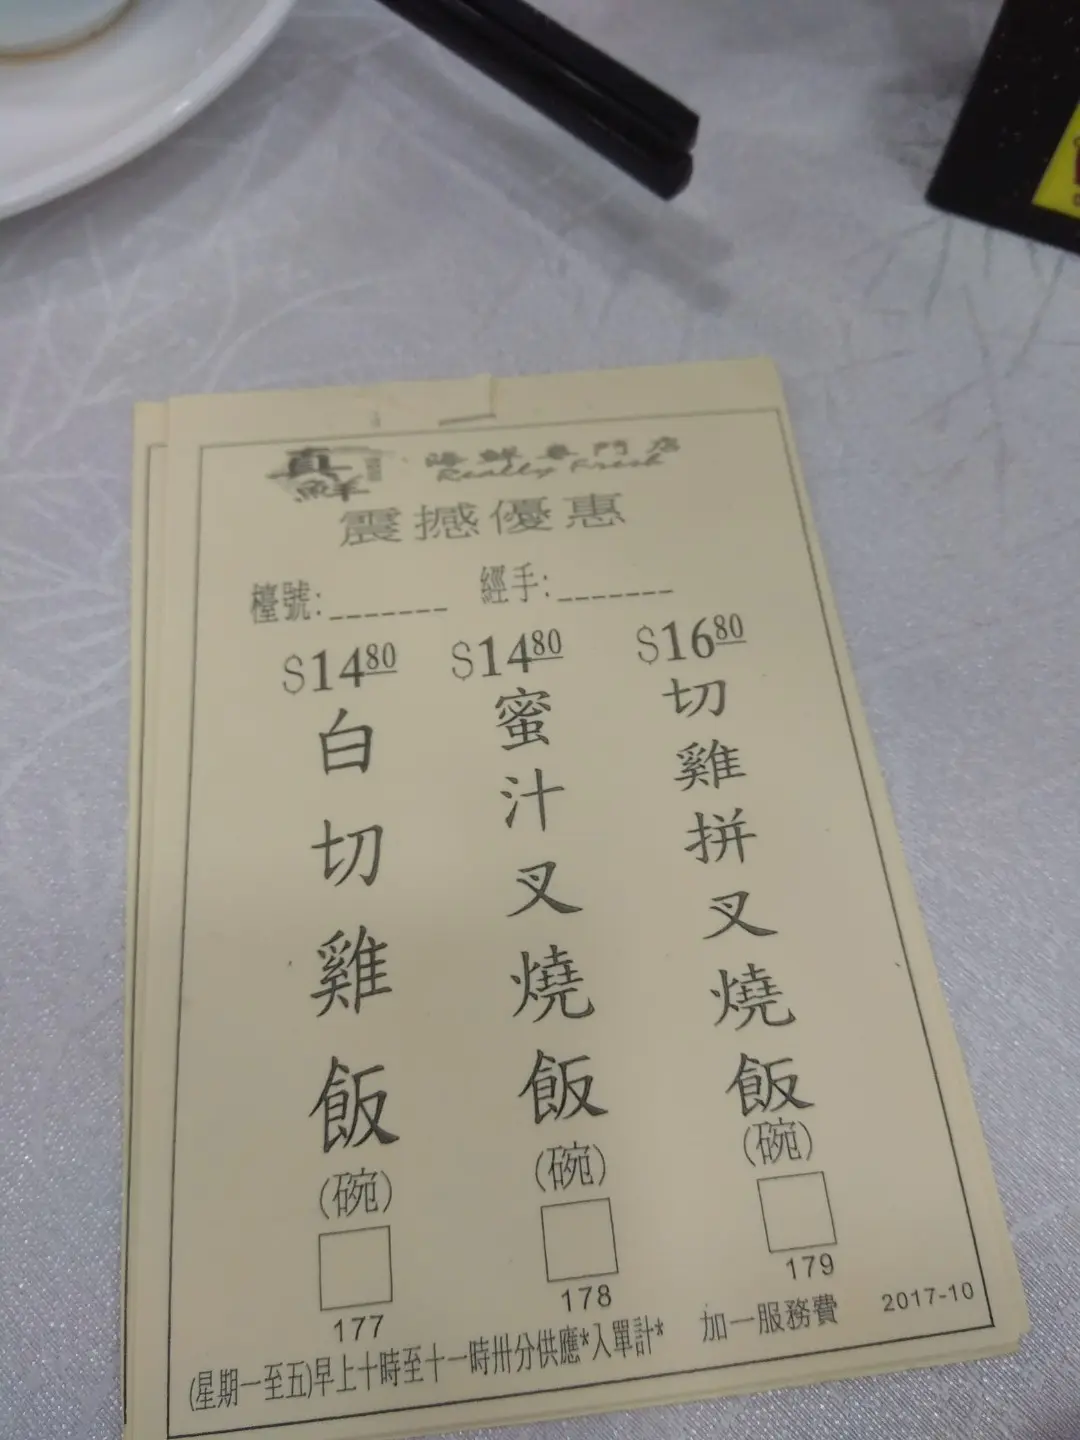 真鮮
海鮮專門店
Really Fresh
震撼優惠
檯號:_______ 經手:_______
$14.80 $14.80 $16.80
白切雞飯(碗)
177
蜜汁叉燒飯(碗)
178
切雞拼叉燒飯(碗)
179
(星期一至五)早上十時至十一時卅分供應*入單計* 加一服務費 2017-10